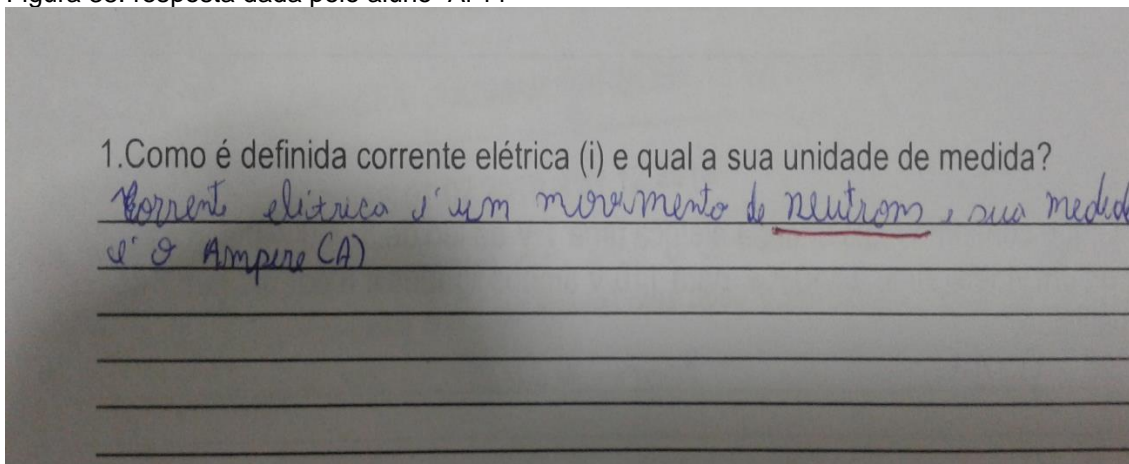 1.Como é definida corrente elétrica (i) e qual a sua unidade de medida?
Corrent elitrica é um movimento de neutrons, sua medid
é o Ampere (A)